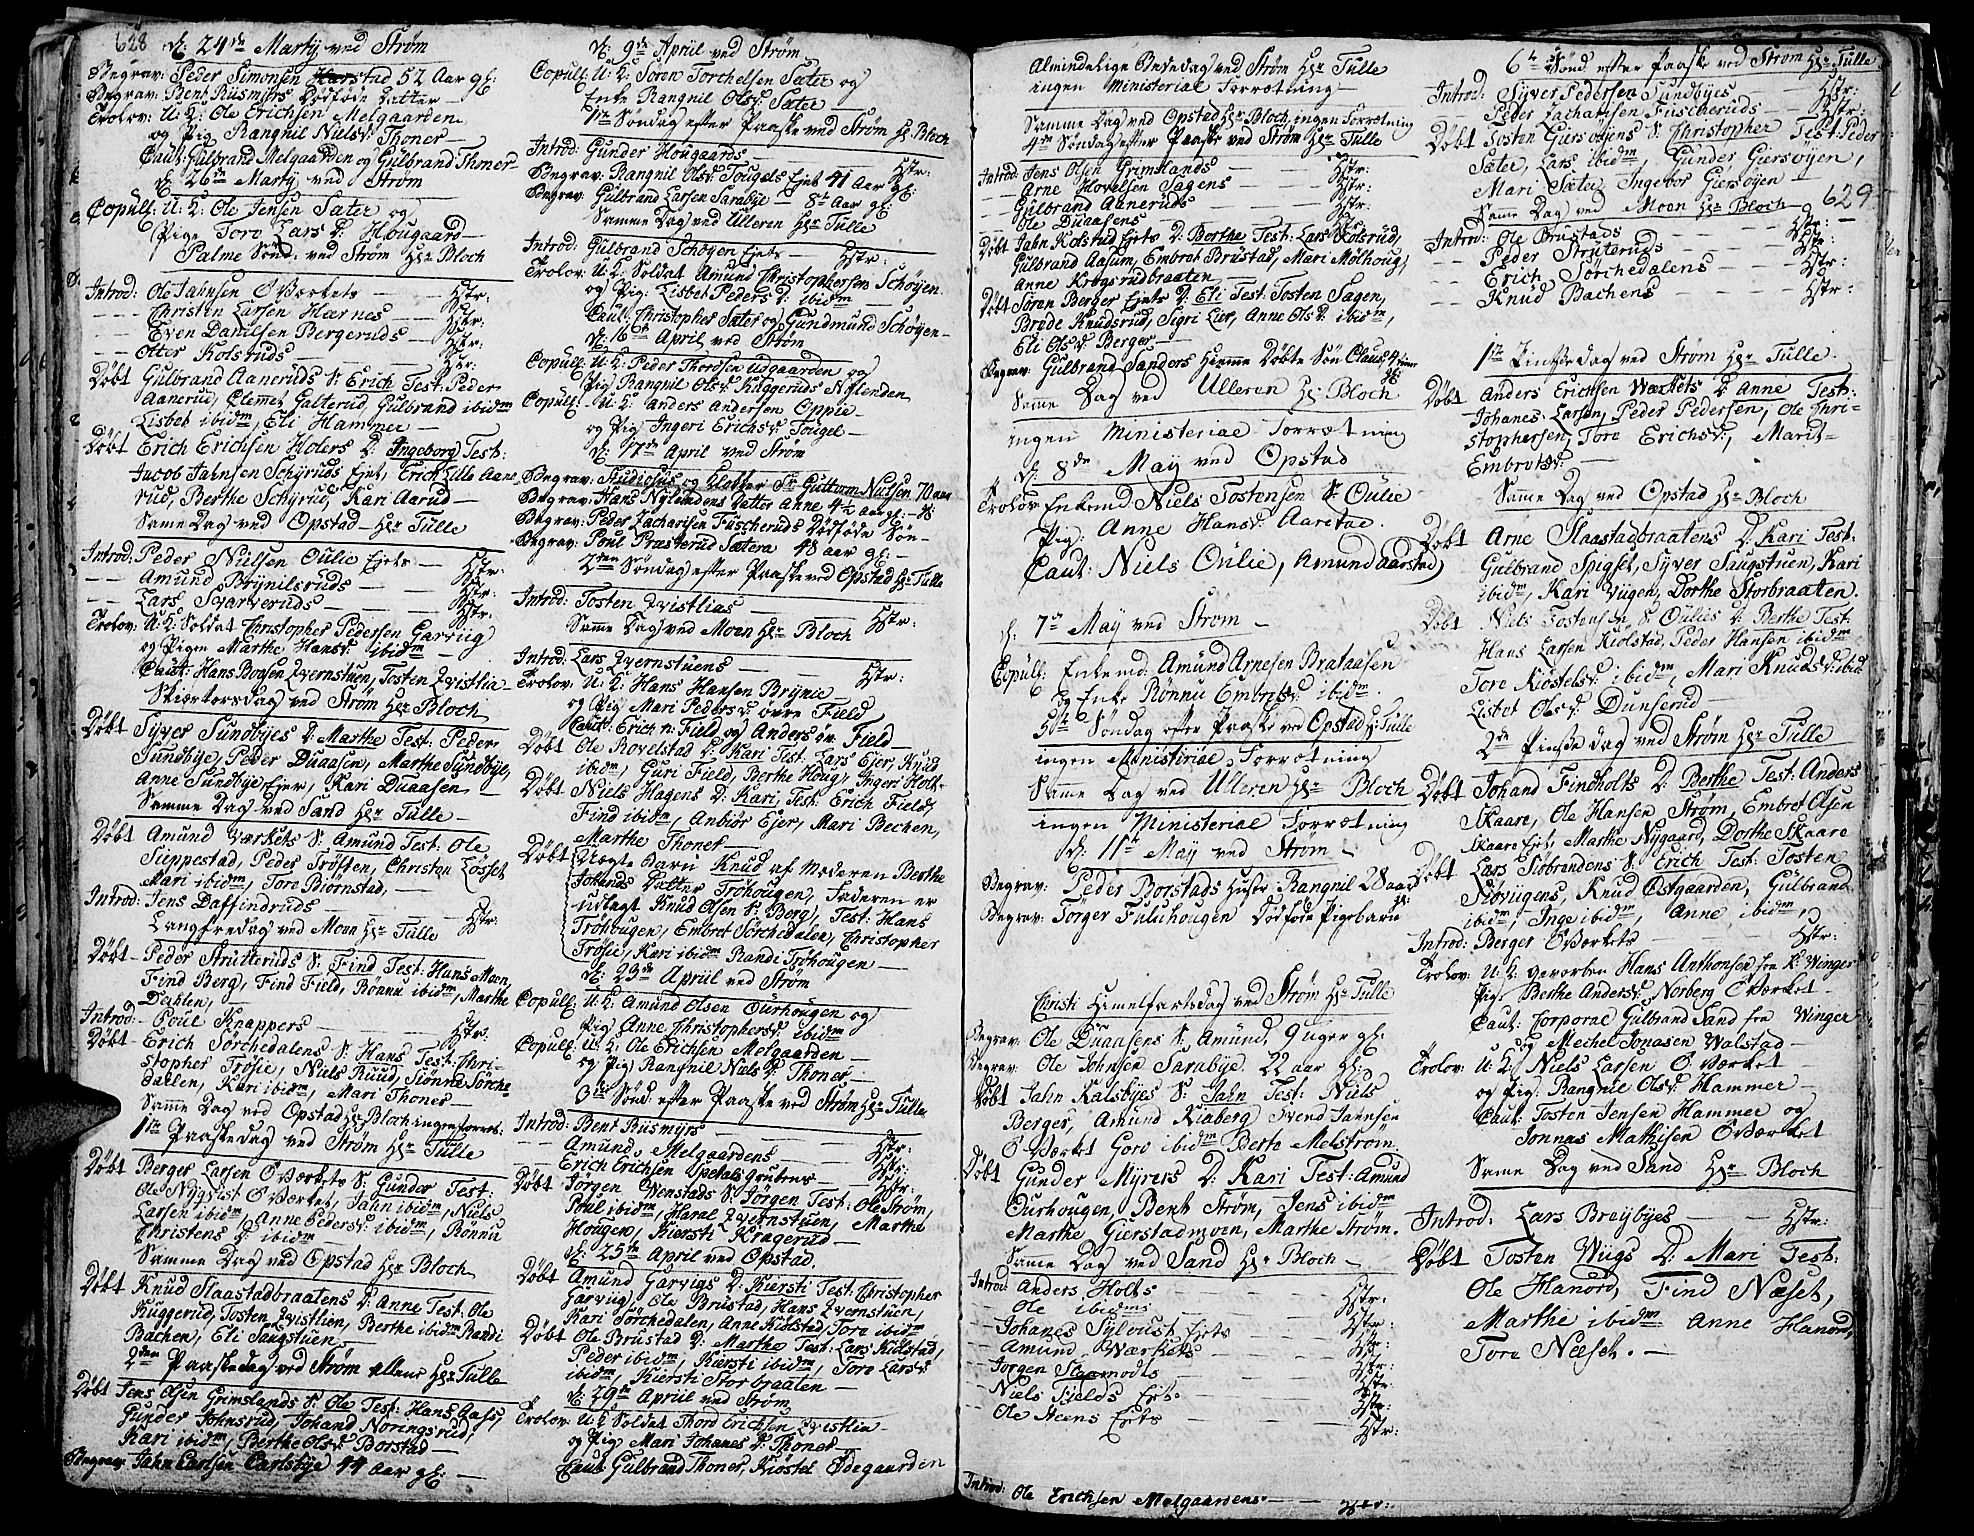 628
d: 24de Martÿ ved Strøm
Begrav: Peder Simonsen Harstad 52 Aar gl:
Begrav: Bent Rusmÿrs Dødføde Datter —
Trolov: U: K: Ole Erichsen Melgaarden
og Pig Rangnil Nielsd: Thoner —
Caut: Gulbrand Melgaarden og Gulbrand Thoner
d: 26de Martÿ ved Strøm
Copul: U: K: Ole Jensen Sæter og
Pige Tore Lars D: Hougaard —
Palme Sønd: ved Strøm Hr Bloch
Introd: Ole Jahnsen O Værkets — Hstr:
- - - Christen Larsen Hærnes — Hstr:
- - - Even Danilsen Bergeruds — Hstr:
- - Otter Kolsruds — Hstr:
Døbt Gulbrand Aaneruds S: Erich Test: Peder
Aanerud, Clemmet Galterud, Gulbrand ibidm
Lisbet ibidm, Eli Hammer —
Døbt Erich Erichsen Holers D: Ingeborg Test:
Jacob Jahnsen Schÿruds Ejet, Erich Lille Aane
rud, Berthe Schÿrud, Kari Aarud —
Same Dag ved Opstad Hr Tulle
Introd: Peder Nielsen Oulie Ejets — Hstr:
- - Amund Brÿnilsruds — Hstr:
- - Lars Svarveruds — Hstr:
Trolov: U: K: Soldat Christopher Pedersen Garviig
og Pigen Marthe Hansd: ibidm —
Caut: Hans Boesen Qvernstuen, Tosten Qvistlie
Skiærtorsdag ved Strøm Hr Bloch
Døbt Sÿver Sundbÿes D: Marthe Test: Peder
Sundbÿe, Peder Duaasen, Marthe Sundbÿe,
Anne Sundbÿe Ejer, Kari Duaasen —
Samme Dag ved Sand Hr Tulle —
Døbt Amund Værkets S: Amund Test: Ole
Sieppestad, Peder Trøften, Christen Løsset
Mari ibidm, Tore Biørnstad, —
Introd: Jens Daffindruds — Hstr:
Langfredag ved Moen Hr Tulle
Døbt - Peder Strutteruds S: Find Test: Hans Moen,
Find Berg, Find Field, Rønnu ibidm, Marthe
Dahlen, —
Introd: - Poul Knappers — Hstr:
Døbt - Erich Sørchedalens S: Hans Test: Chri-
stopher Trøsie, Niels Ruud, Siønne Sørche
dahlen, Kari ibidm, Mari Thoner —
Same Dag ved Opstad Hr Bloch ingen forret:
1te Paaskedag ved Strøm Hr Tulle
Døbt Berger Larsen O Værkets S: Gunder Test:
Ole Nÿqvist O Værket, Jahn ibidm, Niels
Larsen ibidm, Anne Pedersd: ibidm, Rønnu
Christens D: ibidm —
Samme Dag ved Opstad Hr Bloch
Døbt Knud Slaastadbraatens D: Anne Test: Ole
Kuggerud, Tosten Qvistlien, Berthe ibidm Randi
Bachen, Eli Saugstuen —
2den Paaskedag ved Strøm allene Hr Tulle
Døbt Jens Olsen Grimslands S: Ole Test: Hans Aass,
Gunder Johnsrud, Johand Noringsrud,
Kari ibidm, Berthe Olsd: Borstad —
Begrav: Jahn Carlsen Carlsbÿe 44 Aar gl: —
d: 9de Apriil ved Strøm
Copul: U: K: Søren Torchelsen Sæter og
Enke Rangnil Olsd: Sæter —
1te Søndag efter Paaske ved Strøm Hr Bloch
Introd: Gunder Hougaards — Hstr:
Begrav: Rangnil Olsd: Tougels Ejet 41 Aar gl:
Begrav: Gulbrand Larsen Sarabÿe 8t Aar gl:
Samme Dag ved Ulleren Hr Tulle
Introd: Gulbrand Schøÿen Ejets — Hstr:
Trolov: U: K: Soldat Amund Christophersen Schøÿen
og Pig: Lisbet Peders D: ibidm —
Caut: Christopher Sæter og Gundmund Schøÿen —
d: 16de April ved Strøm
Copul: U: K: Peder Thordsen Udgaarden og
Pig Rangnil Olsd: Kuggeruds Nÿlenden
Copul: U: K: Anders Andersen Oppie —
og Pig Ingeri Erichsd: Tougel —
d: 17de April ved Strøm
Begrav: Studiosus og Klokker Sr Guttorm Nielsen 70 aar
Begrav: Hans Nÿlendens Datter Anne 4½ aar gl: —
Begrav: Peder Zacharisen Fuscheruds Dødføde Søn —
Begrav: Poul Præsterud Sætera 48 aar gl: —
2den Søndag efter Paaske ved Opstad Hr Tulle
Introd: Tosten Qvistlies — Hstr:
Same Dag ved Moen Hr Bloch
Introd: Lars Qvernstuens — Hstr:
Trolov: U: K: Hans Hansen Brÿnie —
og Pig Mari Pedersd: øvre Field
Caut: Erich n: Field og Anders øv: Field —
Døbt Ole Rovelstad D: Kari Test: Lars Ejer, Knud
ibidm, Guri Field, Berthe Houg, Ingeri Holt-
Døbt Niels Hagens D: Kari, Test: Erich Field,
Find ibidm, Anbiør Ejer, Mari Bechen,
Marthe Thoner —
Døbt Uægte Barn Knud af Moderen Berthe
Johands Datter Trøhougen, Faderen er
udlagt Knud Olsen S: Berg, Test: Hans
Trøhougen, Embret Sørchedalen, Christopher
Trøsie, Kari ibidm Randi Trøhougen —
d: 23de Apriil ved Strøm
Copul: U: K: Amund Olsen Ourhougen og
Pig Anne Christophersd: ibidm
Copul: U: K: Ole Erichsen Melgaarden —
og Pig Rangnil Niels D: Thoner —
3die Sønd: efter Paaske ved Strøm Hr Tulle
Introd: Bent Rusmÿrs — Hstr:
Amund Melgaardens — Hstr:
Erich Erichsen Spetalsgrubens — Hstr:
Døbt Jørgen Ovenstads S: Jørgen Test: Ole Strøm,
Poul ibidm, Harel Qvernstuen, Marthe
Hougen, Kiersti Kragerud —
d: 25de April ved Opstad.
Døbt Amund Garvigs D: Kiersti Test: Christopher
Garvug, Ole Brustad, Hans Qvernstuen,
Kari Sørchedalen, Anne Kiølstad, Tore ibidm
Døbt Ole Brustad D: Marthe Test: Lars Kiølstad,
Peder ibidm, Kiersti ibidm, Tore Larsd:
ibidm, Kiersti Storbraaten —
d: 29de Apriil ved Strøm
Trolov: U: K: Soldat Thord Erichsen Qvistlien —
og Pig Mari Johanes D: Thoner —
Caut: Gulbrand Thoner, Kiøstel Ødegaarden
Almindelige Bededag ved Strøm Hr Tulle
ingen Ministerial Forretning —
Samme Dag ved Opstad Hr Bloch, ingen Forretning
4de Søndag efter Paaske ved Strøm Hr Tulle
Introd: Jens Olsen Grimslands — Hstr:
- - Arne Hovelsen Sagens — Hstr:
- - Gulbrand Aaneruds — Hstr:
- - Ole Duaasens — Hstr:
Døbt Jahn Kolsrud Ejets D: Berthe Test: Lars Kolsrud,
Gulbrand Aasum, Embret Brustad, Mari Mølhoug,
Anne Krogsrudbraaten —
Døbt Søren Berger Ejets D: Eli Test: Tosten Sagen,
Brede Knudsrud, Sigri Lier, Anne Olsd: ibidm,
Eli Olsd: Berger —
Begrav: Gulbrand Sanders Hiemme Døbte Søn Claus, 4 timer gl:
Same Dag ved Ulleren Hr Bloch
ingen Ministerial Forretning
d: 8de Maÿ ved Opstad
Trolov: Enkemd: Niels Tostensen S: Oulie
Pig: Anne Hansd: Aarstad.
Caut: Niels Oulie, Amund Aarstad
d: 7de Maÿ ved Strøm —
Copul: Enkemd: Amund Arnesen Brataasen
og Enke Rønnu Embretsd: ibidm.
5te Søndag efter Paaske ved Opstad Hr Tulle
ingen Ministerial Forretning
Same Dag ved Ulleren Hr Bloch
ingen Ministerial Forretning
d: 11te Maÿ ved Strøm —
Begrav: Peder Borstads Hustr: Rangnil 28 aar gl:
Begrav: Tørger Fuluhougen Dødføde Pigebarn
Christi Himelfartsdag ved Strøm Hr Tulle
Begrav: Ole Duaasens S: Amund, 9 uger gl:
Begrav: Ole Johnsen Sarabÿe. 22 aar gl:
Døbt Jahn Kalsbÿes S: Jahn Test: Niels
Berger, Amund Kiaberg Svend Jahnsen
O Værket Goro ibidm Berte Melstrøm
Døbt Gunder Mÿrers D: Kari Test: Amund
Ourhougen, Bent Strøm, Jens ibidm
Marthe Gierstadmoen, Marthe Strøm.
Same Dag ved Sand Hr Bloch —
Introd: Anders Holts — Hstr:
- - Ole ibidms — Hstr:
- - Johanes Sÿlvust Ejets — Hstr:
- - Amund Værkets — Hstr:
- - Jørgen Skaamodts — Hstr:
- - Niels Fields Ejt: — Hstr:
- - Ole Steens Ejts — Hstr:
Introd: Ole Erichsen Melgaardens — Hstr:
6te Sønd efter Paaske ved Strøm Hr Tulle
Introd: Sÿver Pedersen Sundbÿes — Hstr:
- - Peder Zacharisen Fuscheruds — Hstr:
Døbt Tosten Giersøÿens S: Christopher Test: Peder
Sæter, Lars ibidm, Gunder Giersøÿen,
Mari Sæter, Ingebor Giersøÿen —
629
Same Dag ved Moen Hr Bloch
Introd: Ole Brustads — Hstr:
- - Peder Struteruds — Hstr:
- - Erich Sørchedalens — Hstr:
- - Knud Bachens — Hstr:
1te Pintsedag ved Strøm Hr Tulle.
Døbt Anders Erichsen Værkets D: Anne Test:
Johanes Larsen, Peder Pedersen, Ole Chri-
stophersen, Tore Erichsd:, Marit
Embretsd: —
Same Dag ved Opstad Hr Bloch
Døbt Arne Slaastadbraatens D: Kari Test:
Gulbrand Spigset, Sÿver Saugstuen, Kari
ibidm, Kari Viigen, Dorthe Storbraaten.
Døbt Niels Tostensen S: Oulies D: Berthe Test:
Hans Larsen Kiolstad, Peder Hansen ibidm
Tore Kiøstelsd: ibidm, Mari Knudsd: ibid
Lisbet Olsd: Dunserud —
2den Pintse dag ved Strøm Hr Tulle
Døbt Johand Findholts D: Berthe Test: Anders
Skaare, Ole Hansen Strøm, Embret Olsen
Skaare Ejet, Marthe Nÿgaard, Dorthe Skaare
Døbt Lars Siøbrendens S: Erich Test: Tosten
Næviigens, Knud Østgaarden, Gulbrand
ibidm, Inge ibidm, Anne ibidm,
Introd: Berger O Værkets — Hstr:
Trolov: U: K. Gevorben Hans Anthonsen fra K: Winger
Pig: Berthe Andersd: Norberg O Værket —
Caut: Corporal Gulbrand Sand fra Winger
og Mechel Jonasen Walstad —
Trolov: U: K: Niels Larsen O Værket
og Pig: Rangnil Olsd: Hammer —
Caut: Tosten Jensen Hammer og
Jonnas Mathisen O Værket
Same Dag ved Sand Hr Bloch
Introd: Lars Breÿbÿes — Hstr:
Døbt Tosten Wiigs D: Mari Test:
Ole Hanord, Find Næset,
Marthe ibidm Anne Hanord,
Tore Næset. —